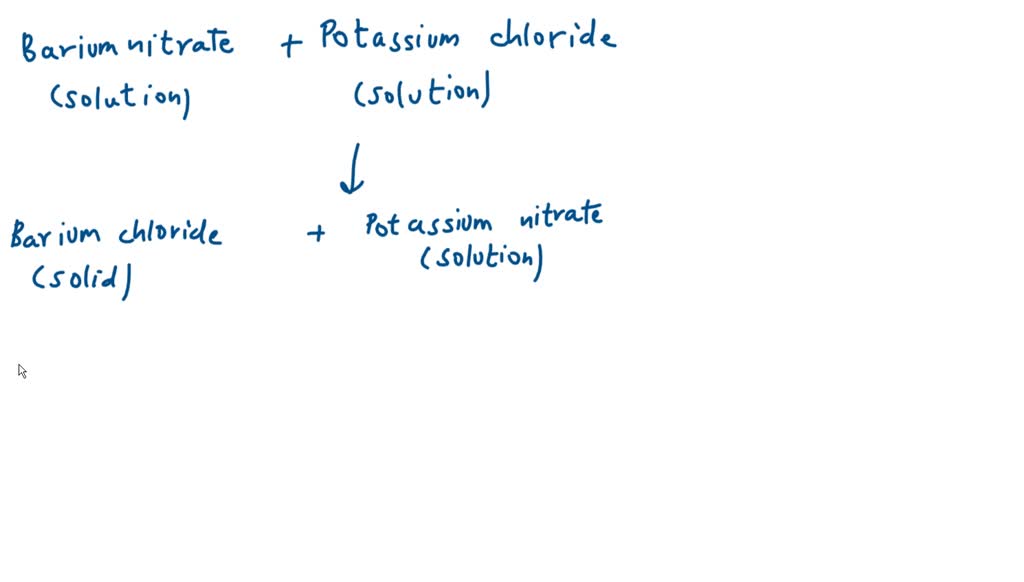 Barium nitrate + Potassium chloride
(solution) (solution)
↓
Barium chloride + Potassium nitrate
(solid) (solution)